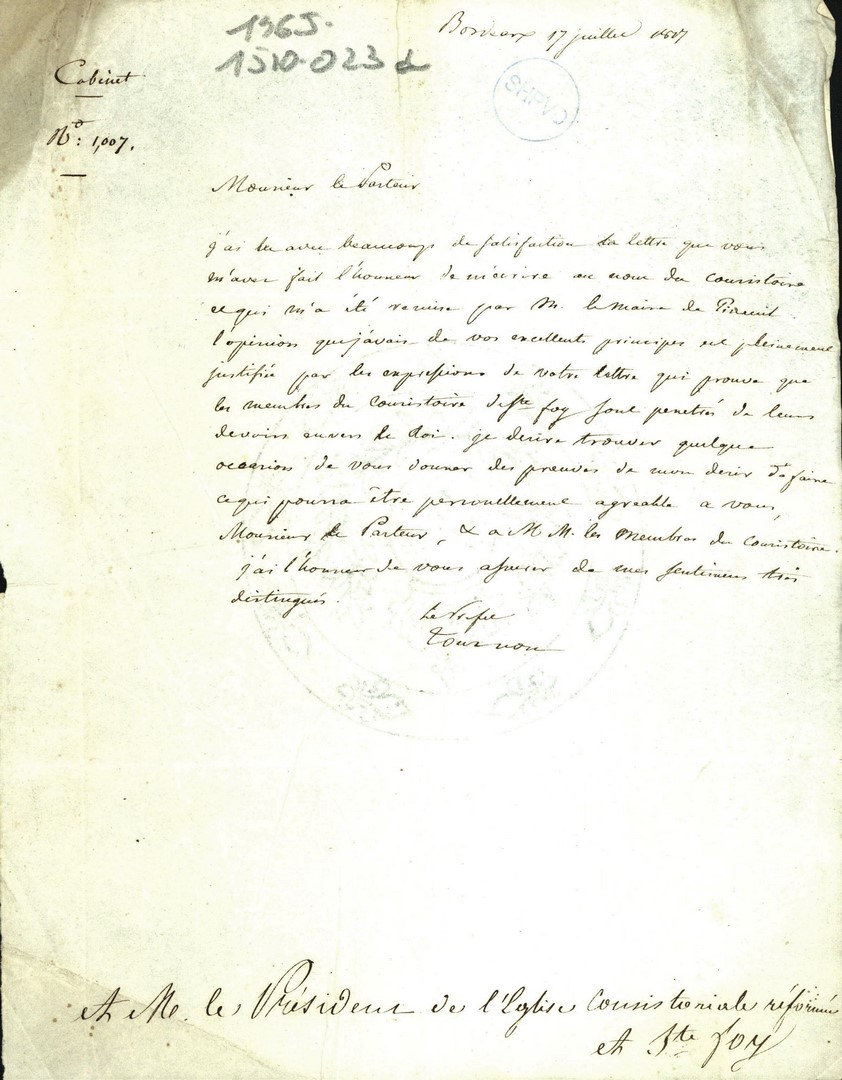 1965.
1510-023 d
Bordeaux 17 juillet 1817
SHPVD
Cabinet
No: 1,007.
Monsieur le Pasteur
j'ai lu avec beaucoup de satisfaction la lettre que vous
m'avez fait l'honneur de m'écrire au nom du consistoire
et qui m'a été remise par M. le maire de Pineuil.
l'opinion que j'avais de vos excellents principes est pleinement
justifiée par les expressions de votre lettre qui prouve que
les membres du Consistoire de Ste foy sont penetrés de leurs
devoirs envers le Roi. je desire trouver quelque
occasion de vous donner des preuves de mon desir de faire
ce qui pourra être personnellement agreable a vous,
Monsieur le Pasteur, & a M M. les Membres du Consistoire.
j'ai l'honneur de vous assurer de mes sentimens très
distingués.
Le Préfet
Tournon
A M. le Président de l'Eglise Consistoriale réformée
A Ste foy